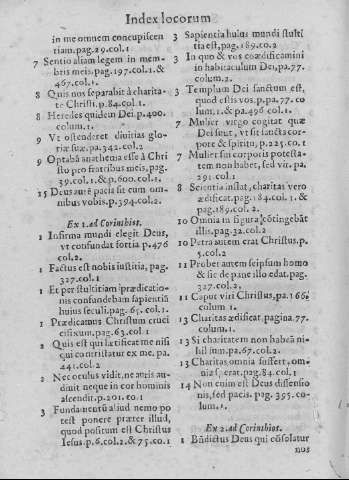 Index locorum
in me omnem concupiscen
tiam. pag. 29. col. 1
7 Sentio aliam legem in mem-
bris meis, pag. 197. col. 1. &
467. col. 1.
8 Quis nos separabit à charita-
te Christi. p. 84. col. 1.
8 Heredes quidem Dei p. 400.
column. 1.
9 Vt ostenderet diuitias glo-
riæ suæ. pa. 342. col. 2
9 Optabã anathema esse à Chri
sto pro fratribus meis, pag.
39. col. 1. & p. 600. col. 1.
15 Deus autẽ pacis sit cum om-
nibus vobis. p. 394. col. 2.
Ex 1. ad Corinthios.
1 Infirma mundi elegit Deus,
vt confundat fortia p. 476
col. 2.
1 Factus est nobis iustitia, pag.
327. col. 1
1 Et per stultitiam prædicatio-
nis confundebam sapientiã
huius seculi, pag. 65. col. 1.
1 Prædicamus Christum cruci
cifixum. pag. 63. col. 1
2 Quis est qui lætificat me nisi
qui contristatur ex me. pa.
441. col. 2
2 Nec oculus vidit, ne auris au-
diuit neque in cor hominis
ascendit. p. 201. co. 1
3 Fundamentũ aliud nemo po
test ponere præter illud,
quod positum est Christus
Iesus. p. 6. col. 2. & 75. co. 1
3 Sapientia huius mundi stulti
tia est, pag. 189. co. 2
3 In quo & vos coædificamini
in habitaculum Dei, pa. 77.
colum. 2.
3 Templum Dei sanctum est,
quod estis vos. p. pa. 77. co
lum. 1. & pa. 496 col. 1.
7 Mulier virgo cogitat quæ
Dei sunt, vt sit sancta cor-
pore & spiritu, p. 225. co. 1
7 Mulier sui corporis potesta-
tem non habet, sed vir. pa.
291 col. 1
8 Scientia inflat, charitas vero
ædificat. pag. 184. col. 1. &
pag. 189. col. 2.
10 Omnia in figura cõtingebãt
illis, pag. 32. col. 2
10 Petra autem erat Christus. p.
5. col. 2
11 Probet autem seipsum homo
& sic de pane illo edat. pag.
327. col. 2,
11 Caput viri Christus, pa. 166.
colum 1.
13 Charitas ædificat. pagina. 77.
colum. 1.
13 Si charitatem non habeã ni-
hil sum. pa. 67. col. 2.
13 Charitas omnia suffert, om-
nia sperat. pag. 84. col. 1
14 Non enim est Deus dissensio
nis, sed pacis. pag. 395. co-
lum. 1.
Ex 2. ad Corinthios.
1 Bñdictus Deus qui cõsolatur
nos